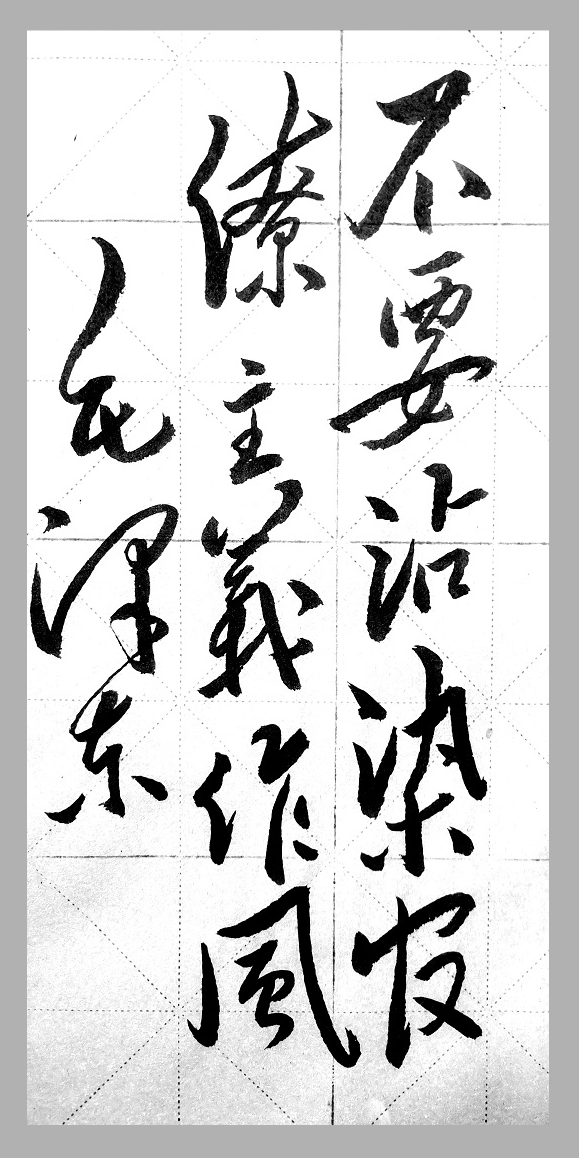 不要沾染官
僚主義作風
毛澤东